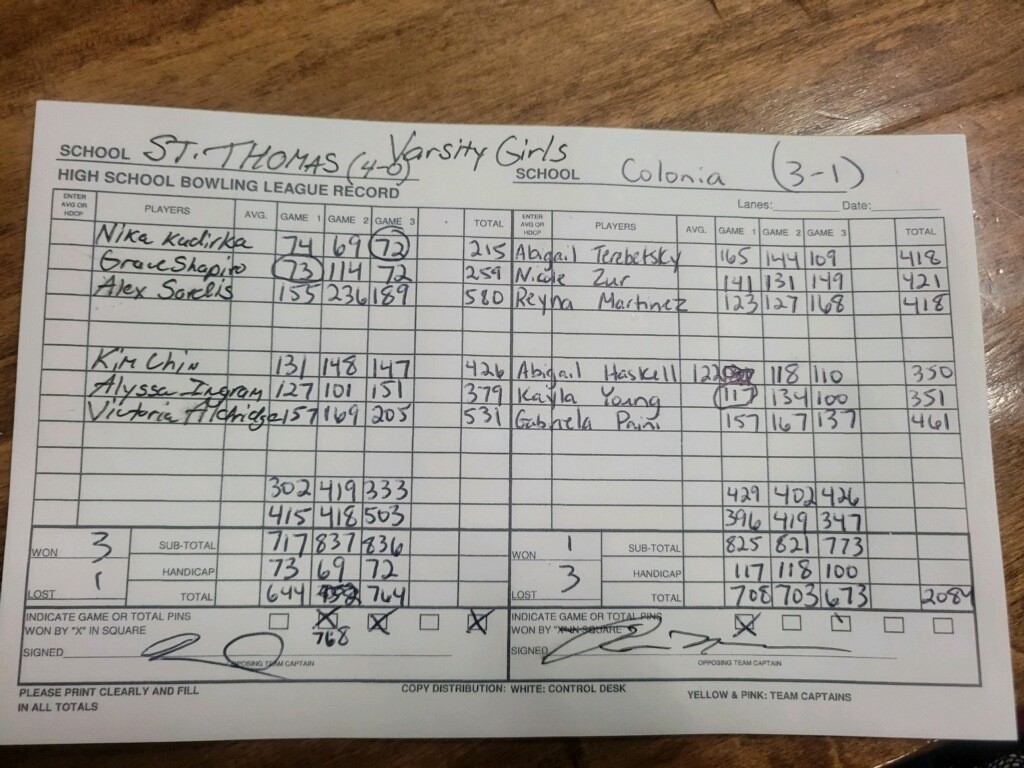 SCHOOL ST. THOMAS (4-0) Varsity Girls SCHOOL Colonia (3-1)
HIGH SCHOOL BOWLING LEAGUE RECORD
Lanes: Date:
ENTER AVG OR HDCP PLAYERS AVG. GAME 1 GAME 2 GAME 3 TOTAL ENTER AVG OR HDCP PLAYERS AVG. GAME 1 GAME 2 GAME 3 TOTAL
Nika Kudirka 74 69 72 215 Abigail Terebetsky 165 144 109 418
Grace Shapiro 73 114 72 259 Nicole Zur 141 131 149 421
Alex Sorelis 155 236 189 580 Reyna Martinez 123 127 168 418
Kim Chin 131 148 147 426 Abigail Haskell 122 118 110 350
Alyssa Ingram 127 101 151 379 Kayla Young 117 134 100 351
Victoria Aldridge 157 169 205 531 Gabriela Prini 157 167 137 461
302 419 333 429 402 426
415 418 503 396 419 347
WON 3 SUB-TOTAL 717 837 836 WON 1 SUB-TOTAL 825 821 773
HANDICAP 73 69 72 HANDICAP 117 118 100
LOST 1 TOTAL 644 764 LOST 3 TOTAL 708 703 673 2084
INDICATE GAME OR TOTAL PINS X X X INDICATE GAME OR TOTAL PINS X
WON BY "X" IN SQUARE 768 WON BY "X" IN SQUARE
SIGNED SIGNED
OPPOSING TEAM CAPTAIN OPPOSING TEAM CAPTAIN
PLEASE PRINT CLEARLY AND FILL COPY DISTRIBUTION: WHITE: CONTROL DESK YELLOW & PINK: TEAM CAPTAINS
IN ALL TOTALS